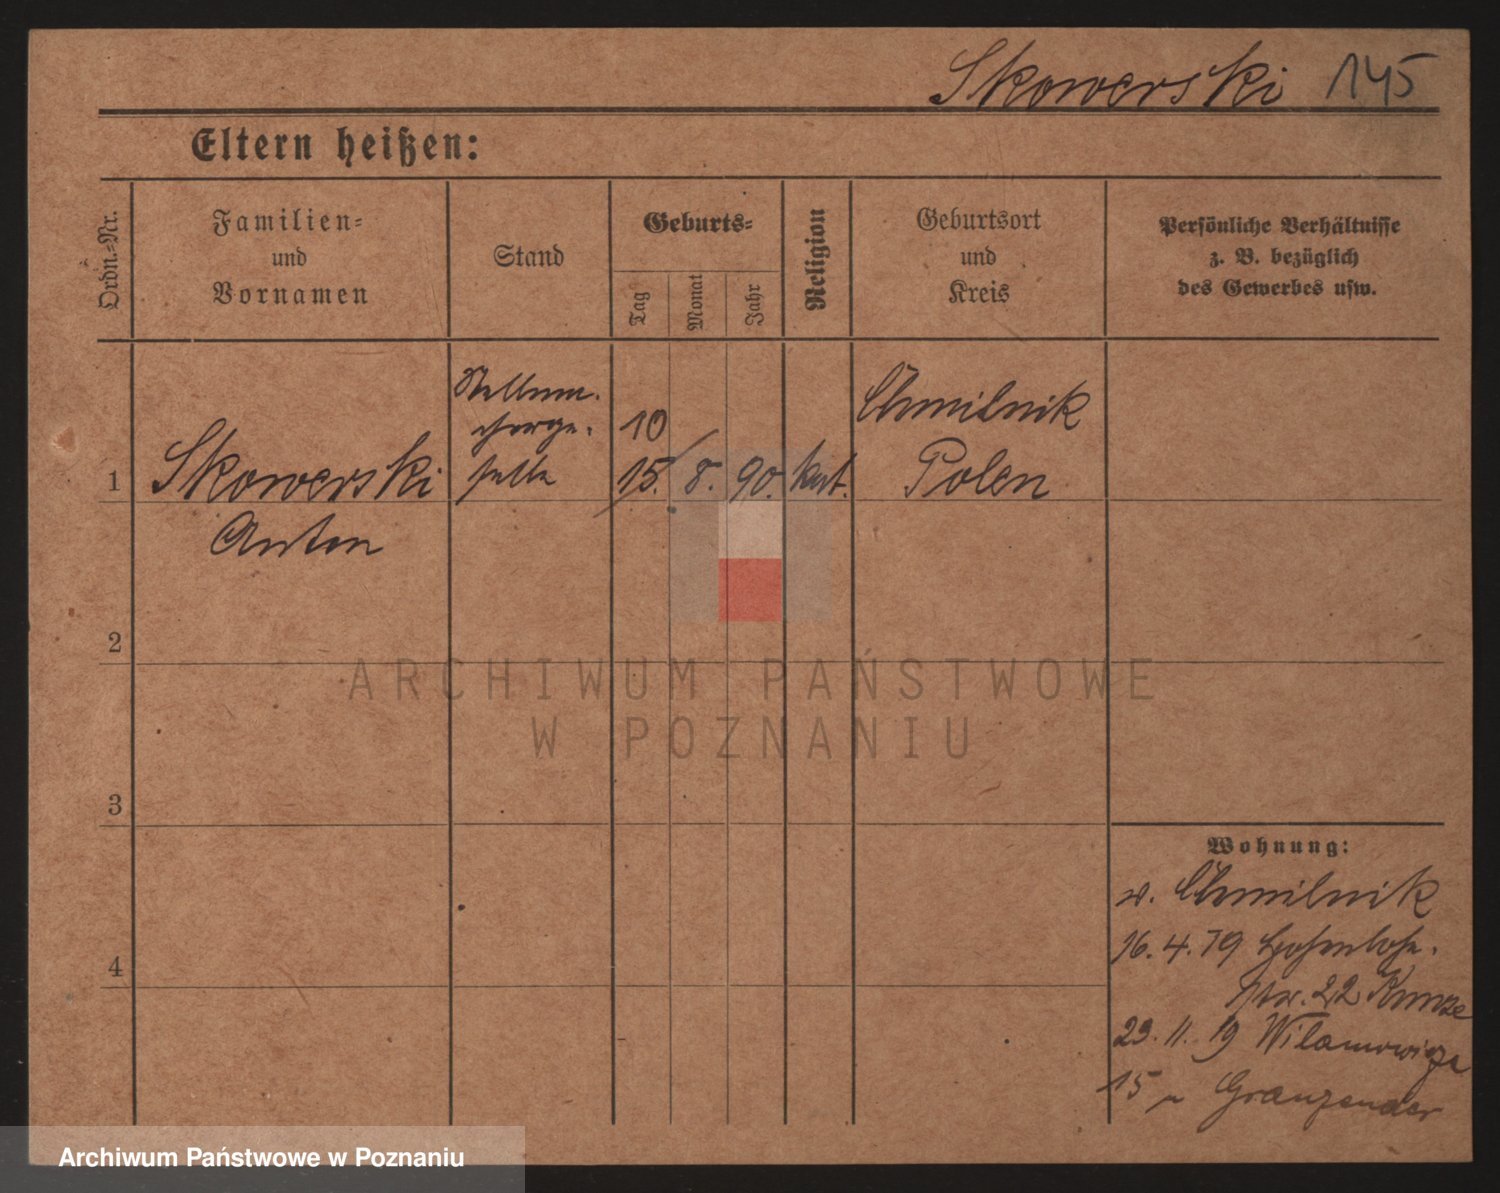 Skowerski 145
Eltern heißen:
Ordn.-Nr.
Familien-
und
Vornamen
Stand
Geburts-
Tag
Monat
Jahr
Religion
Geburtsort
und
Kreis
Persönliche Verhältnisse
z. B. bezüglich
des Gewerbes usw.
1
Skowerski
Anton
Stellma-
cherge-
selle
10
15. 8. 90.
kat.
Chmilnik
Polen
2
3
4
ARCHIWUM PAŃSTWOWE
W POZNANIU
Wohnung:
v. Chmilnik
16. 4. 19 Hohenlohe-
str. 22 Kunze
29. 11. 19
15
Archiwum Państwowe w Poznaniu